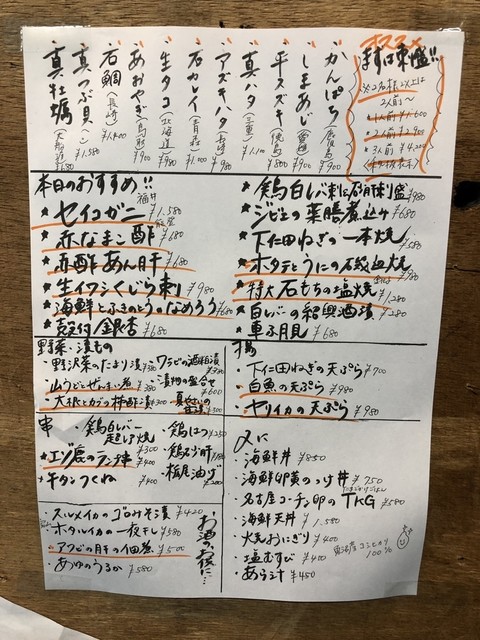 オススメ
まずは東盛!!
2人前〜
1人前 ¥1600
2人前 ¥2900
3人前 ¥4200
かんぱち(鹿児島) ¥900
しまあじ(愛媛) ¥980
平スズキ(徳島) ¥800
真ハタ(三重) ¥1,100
アズキハタ(長崎) ¥980
石カレイ(青森) ¥1,000
生タコ(北海道) ¥980
あおやぎ(鳥取) ¥900
石鯛(長崎) ¥1,400
真つぶ貝 ¥1,580
真牡蠣(大船渡) ¥680
本日のおすすめ!!
★セイコガニ 福井 ¥1,580
★赤なまこ酢 ¥680
★赤酢あん肝 ¥680
★生イワシくじら刺 ¥980
★海鮮とふきのとうのなめろう ¥680
★殻付銀杏 ¥680
★鶏白レバ刺と砂肝刺盛 ¥980
★ジビエの薬膳煮込み ¥680
★下仁田ねぎの一本焼 ¥580
★ホタテとうにの磯皿焼 ¥980
★特大石もちの塩焼 ¥1,280
★白レバの紹興酒漬 ¥280
★車ふ月見 ¥680
野菜・漬もの
・野沢菜のたまり漬 ¥380
・山うどとぜんまい煮 ¥380
・大根とカブの柿酢漬 ¥300
・ワラビの酒粕漬 ¥380
・漬物の盛合せ ¥600
揚
・下仁田ねぎの天ぷら ¥700
・白魚の天ぷら ¥980
・ヤリイカの天ぷら ¥980
串
・鶏白レバー超レア焼 ¥300
★エゾ鹿のランプ串 ¥400
・牛タンつくね ¥400
・鶏はつ ¥250
・鶏砂肝 ¥200
・栃尾油げ ¥200
〆に
・海鮮丼 ¥850
・海鮮卵黄のっけ丼 ¥750
・名古屋コーチン卵のTKG ¥580
たまごかけごはん
・海鮮天丼 ¥1,580
・焼おにぎり ¥400
・塩むすび ¥400
・あら汁 ¥450
コシヒカリ
100%
お酒のお伴に…
・スルメイカのゴロみそ漬 ¥420
・ホタルイカの一夜干し ¥580
・アワビの肝の佃煮 ¥500
・あゆのうるか ¥580